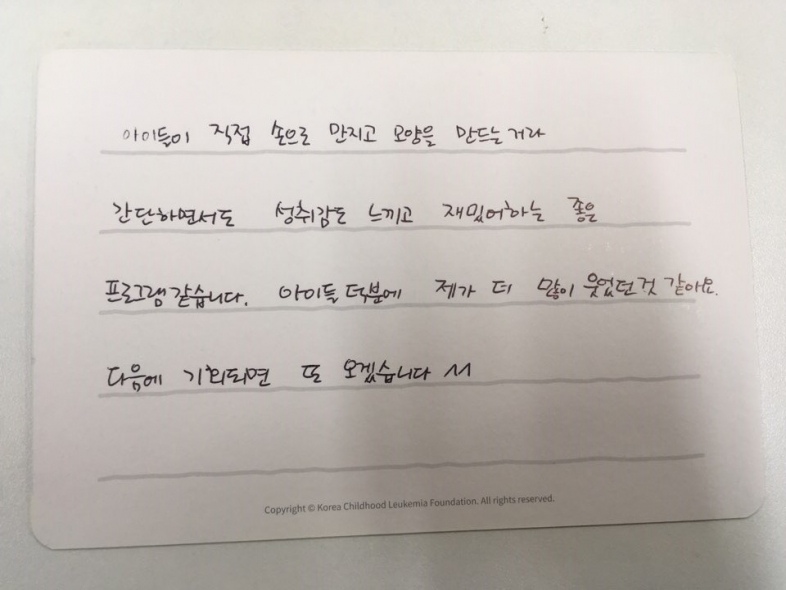 아이들이 직접 손으로 만지고 모양을 만드는거라
간단하면서도 성취감도 느끼고 재밌어하는 좋은
프로그램같습니다. 아이들 덕분에 제가 더 많이 웃었던것 같아요.
다음에 기회되면 또 오겠습니다 ^^
Copyright © Korea Childhood Leukemia Foundation. All rights reserved.